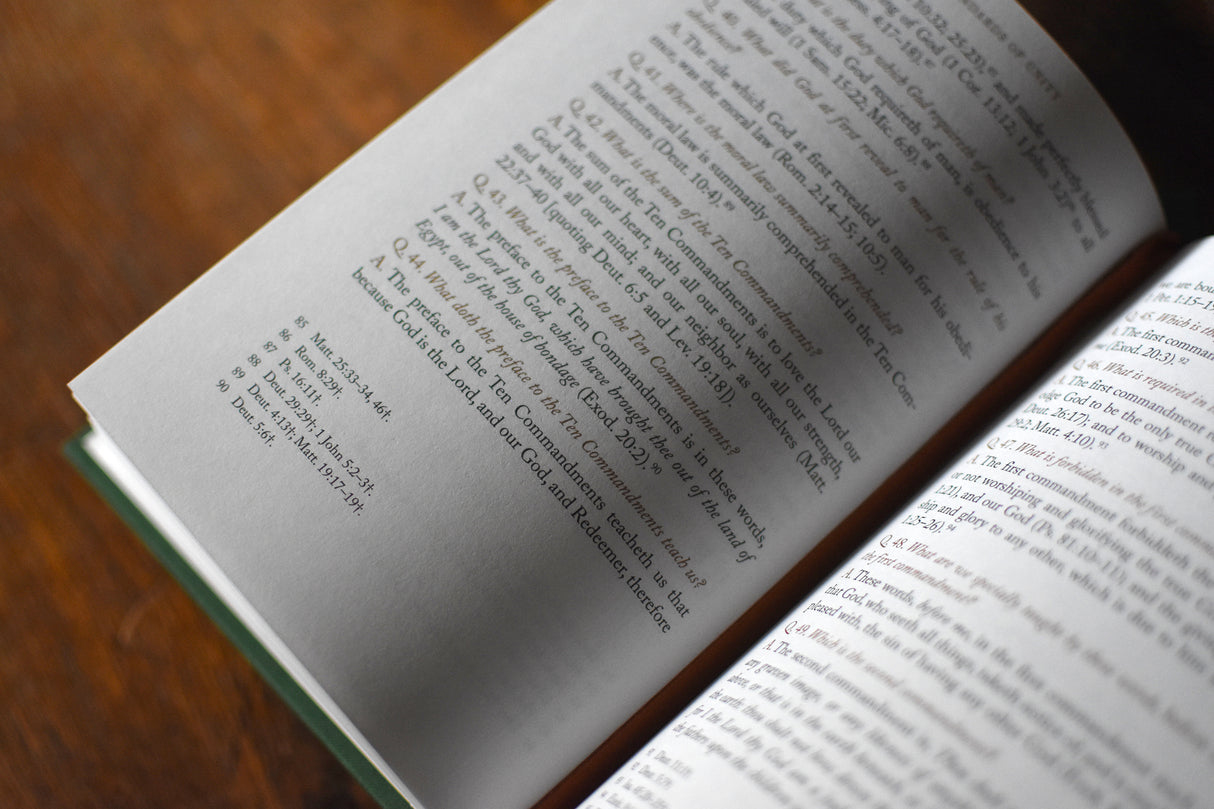 STANDARDS OF UNITY
10:32, 25:23),⁸⁵ and made perfectly blessed
ing of God (1 Cor. 13:12; 1 John 3:2)⁸⁶ to all
ss. 4:17–18).⁸⁷
is the duty which God requireth of man?
duty which God requireth of man, is obedience to his
led will (1 Sam. 15:22; Mic. 6:8).⁸⁸
Q. 40. What did God at first reveal to man for the rule of his
obedience?
A. The rule which God at first revealed to man for his obedi-
ence, was the moral law (Rom. 2:14–15, 10:5).
Q. 41. Where is the moral law summarily comprehended?
A. The moral law is summarily comprehended in the Ten Com-
mandments (Deut. 10:4).⁸⁹
Q. 42. What is the sum of the Ten Commandments?
A. The sum of the Ten Commandments is to love the Lord our
God with all our heart, with all our soul, with all our strength,
and with all our mind; and our neighbor as ourselves (Matt.
22:37–40 [quoting Deut. 6:5 and Lev. 19:18]).
Q. 43. What is the preface to the Ten Commandments?
A. The preface to the Ten Commandments is in these words,
I am the Lord thy God, which have brought thee out of the land of
Egypt, out of the house of bondage (Exod. 20:2).⁹⁰
Q. 44. What doth the preface to the Ten Commandments teach us?
A. The preface to the Ten Commandments teacheth us that
because God is the Lord, and our God, and Redeemer, therefore
85 Matt. 25:33–34, 46†.
86 Rom. 8:29†.
87 Ps. 16:11†.
88 Deut. 29:29†; 1 John 5:2–3†.
89 Deut. 4:13†; Matt. 19:17–19†.
90 Deut. 5:6†.
we are bou
Pet. 1:15–1
Q. 45. Which is th
A. The first comma
me (Exod. 20:3).⁹²
Q. 46. What is required in
A. The first commandment r
edge God to be the only true G
Deut. 26:17); and to worship and
29:2; Matt. 4:10).⁹³
Q. 47. What is forbidden in the first
A. The first commandment forbiddeth th
or not worshiping and glorifying the true G
1:21), and our God (Ps. 81:10–11), and the giving
ship and glory to any other, which is due to
1:25–26).⁹⁴
Q. 48. What are we specially taught by these words, before
the first commandment?
A. These words, before me, in the first commandment
that God, who seeth all things, taketh notice of
pleased with, the sin of having any other God
Q. 49. Which is the second commandment?
A. The second commandment is, Thou
any graven image, or any likeness of
above, or that is in the earth beneath,
the earth: thou shalt not bow down
for I the Lord thy God am a
the fathers upon the children